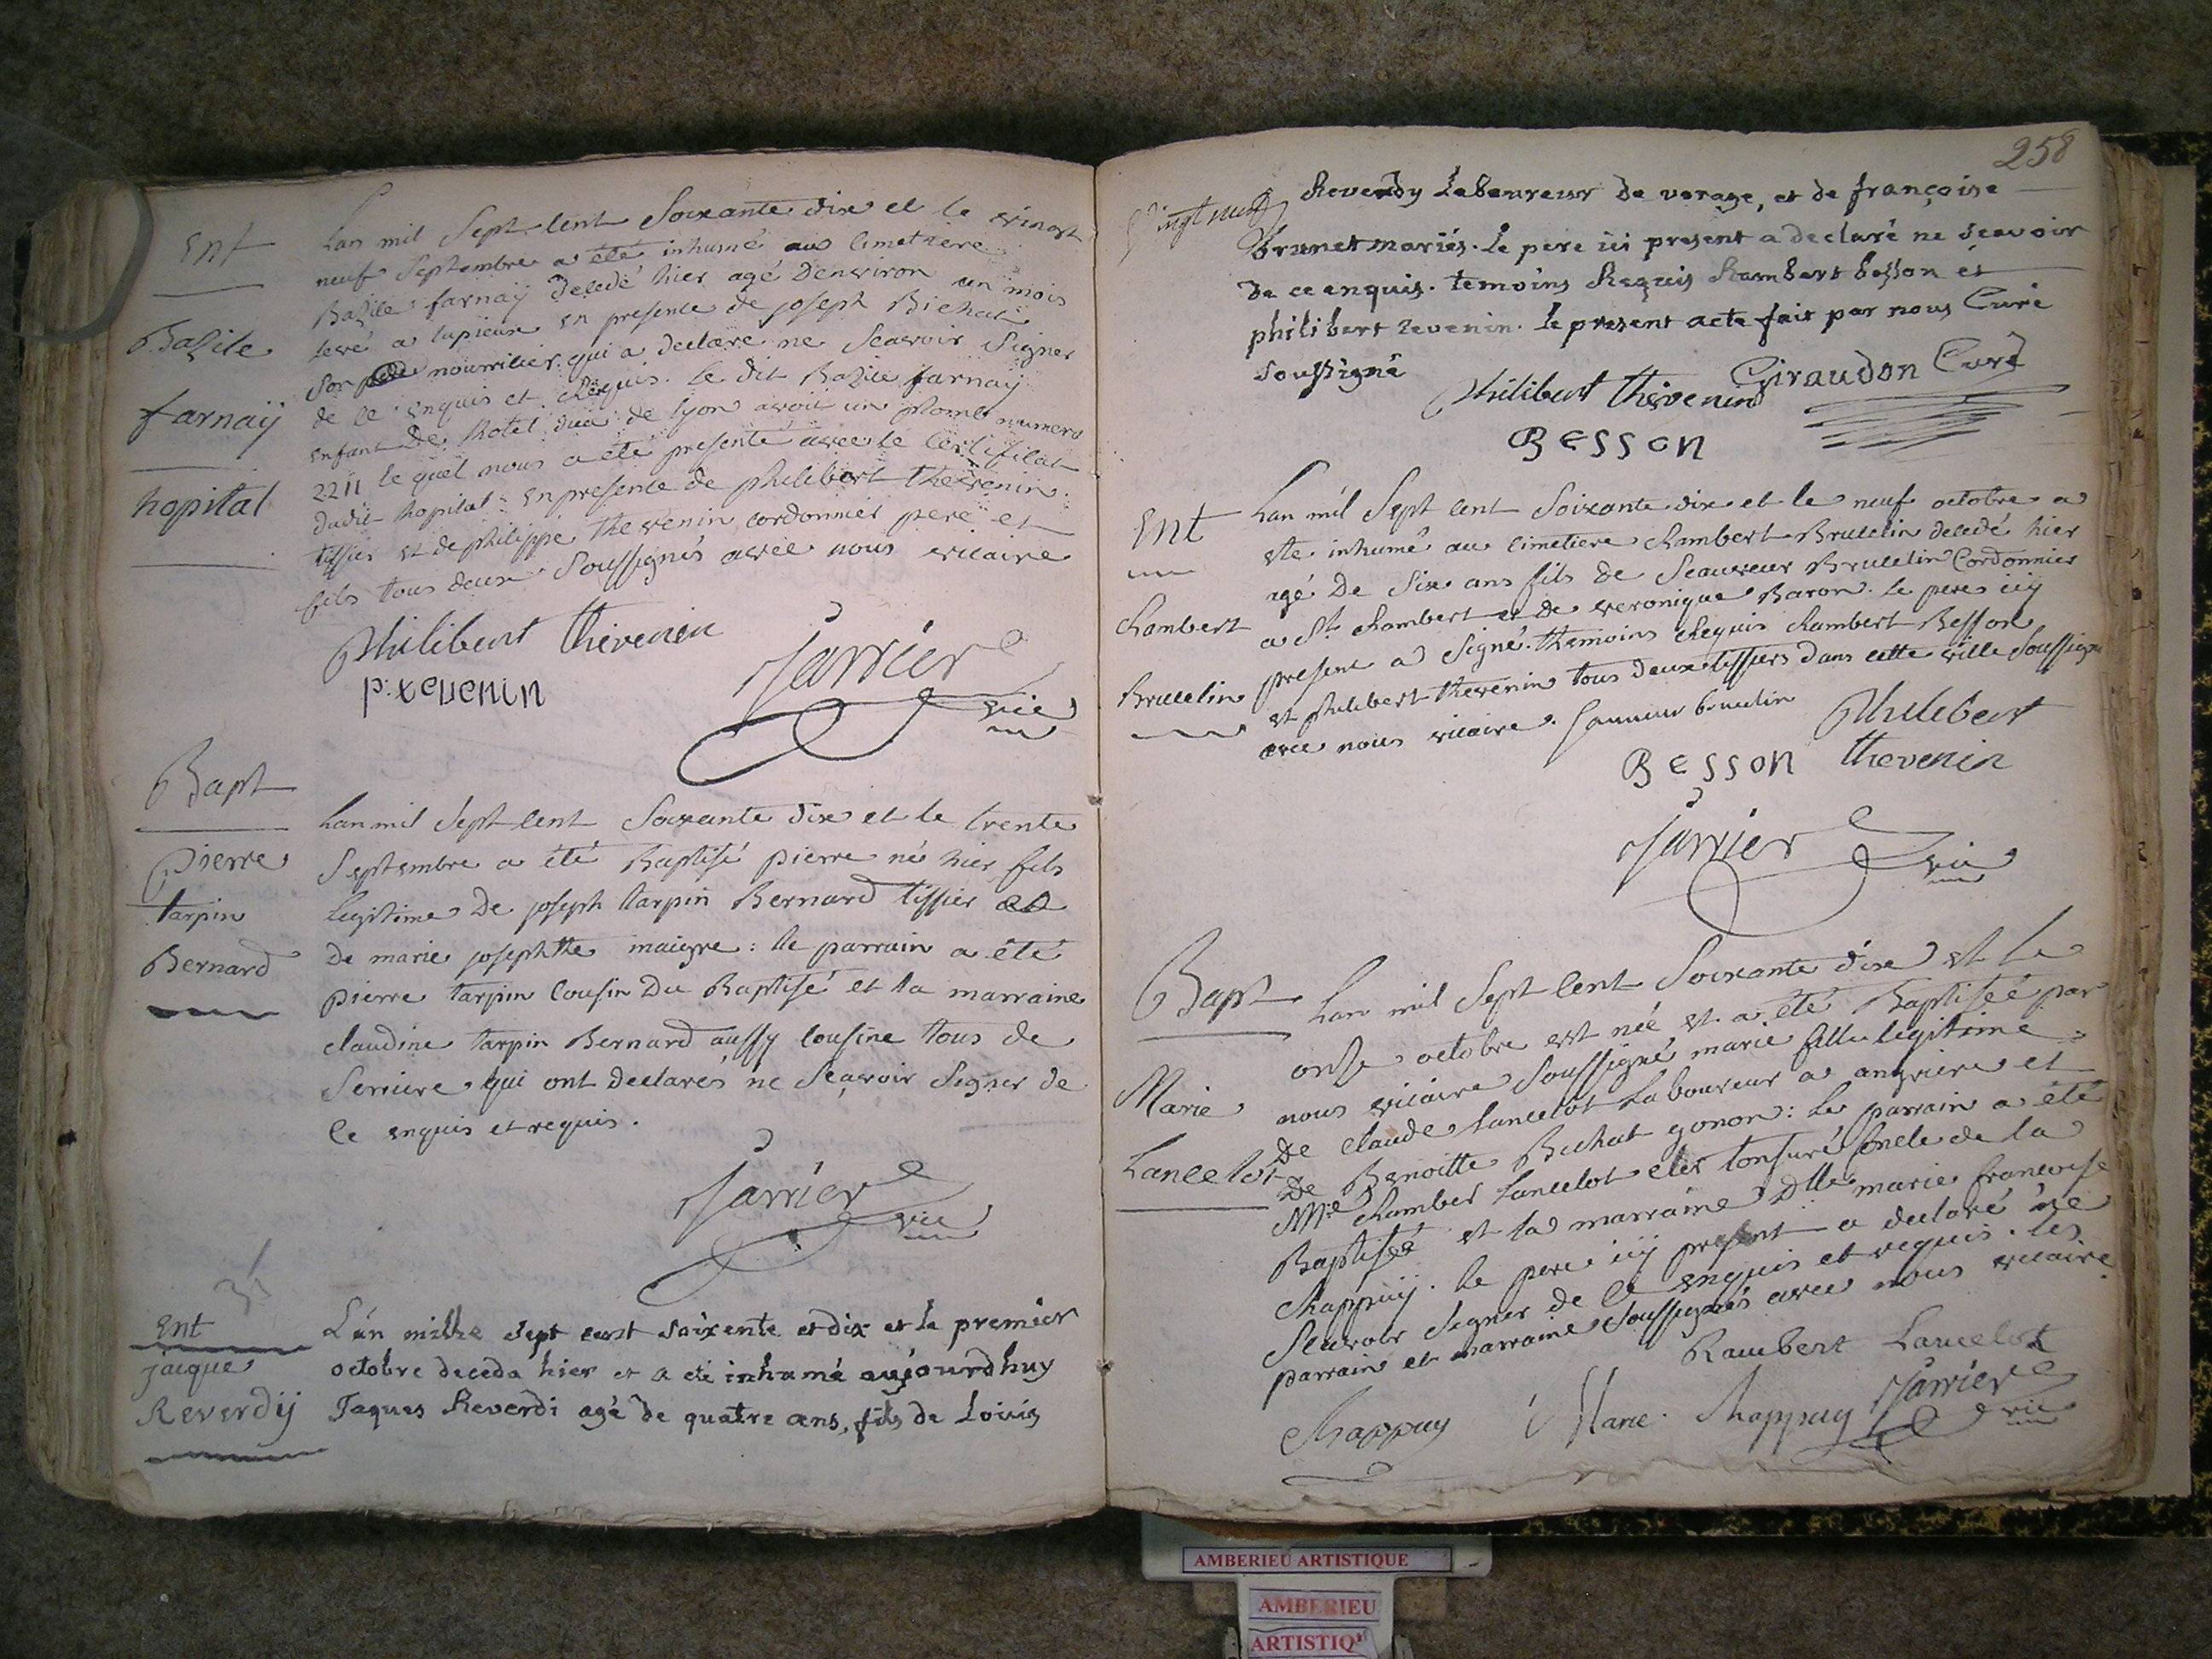 Ent
Bazile
farnaÿ
hopital
Lan mil Sept Cent Soixante dix et le vingt
neuf Septembre a été inhumé au Cimetiere
Bazile farnaÿ decedé hier agé Denviron un mois
levé a lupieux en presence de joseph Bichat
Son nourricier qui a declare ne Scavoir Signer
de ce enquis et Requis. le dit Bazile farnaÿ
enfant De hotel dieu de lyon avoit un plomb numero
2211 le quel nous a été presenté avec le Certificat
dudit hopital en presence de philibert thevenin
tissier et de philippe thevenin cordonnier pere et
fils tous deux Soussignés avec nous vicaire
Philibert thivenin
p: tevenin
Jarrier
vic
Bapt
Pierre
tarpin
Bernard
Lan mil Sept Cent Soixante dix et le trente
Septembre a été Baptisé pierre né hier fils
legitime De joseph tarpin Bernard tissier et
De marie josephtte maigre : le parrain a été
pierre tarpin Cousin Du Baptisé et la marraine
claudine tarpin Bernard aussy Cousine tous de
Serriere qui ont declarés ne Sçavoir Signer de
Ce enquis et requis.
Jarrier
vic
Ent
jacque
Reverdij
L'an mille sept cent soixente et dix et le premier
octobre deceda hier et a eté inhumé aujourdhuy
Jaques Reverdi agé de quatre ans, fils de Loüis
258
Vingt neuf
Reverdy Laboureur de vorage, et de françoise
brunet mariés. Le pere ici present a declaré ne scavoir
de ce enquis. temoins Requis Rambert besson et
philibert tevenin. Le present acte fait par nous Curé
soussigné
Philibert thevenin
Giraudon Curé
BESSON
Ent
Rambert
Bruvelin
Lan mil Sept Cent Soixante dix et le neuf octobre a
ete inhumé au Cimetiere Rambert Bruvelin decedé hier
agé De Six ans fils de Seauveur Bruvelin Cordonnier
a St Rambert et de veronique Baron. le pere icy
present a Signé. themoins Requis Rambert Besson
et philibert thevenin tous deux tissiers dans cette ville Soussignes
avec nous vicaire.
Philibert
BESSON thevenin
Jarrier
vic
Bapt
Marie
Lancelot
Lan mil Sept Cent Soixante dix et le
onze octobre est née et a été Baptiséé par
nous vicaire Soussigné marie fille legitime
De claude lancelot Laboureur a angriere et
De Benoitte Bichat gonon : Le parrain a été
Mre Rambert Lancelot clerc tonsuré oncle de la
Baptiséé et la marraine Dlle marie françoise
Chappuÿ. le pere icÿ present a declaré ne
Scavoir Signer de Ce enquis et requis. les
parrain et marraine Soussignés avec nous vicaire
Rambert Lancelot
Chappuy
Marie Chappuy
Jarrier
vic
AMBERIEU ARTISTIQUE
AMBERIEU
ARTISTIQ